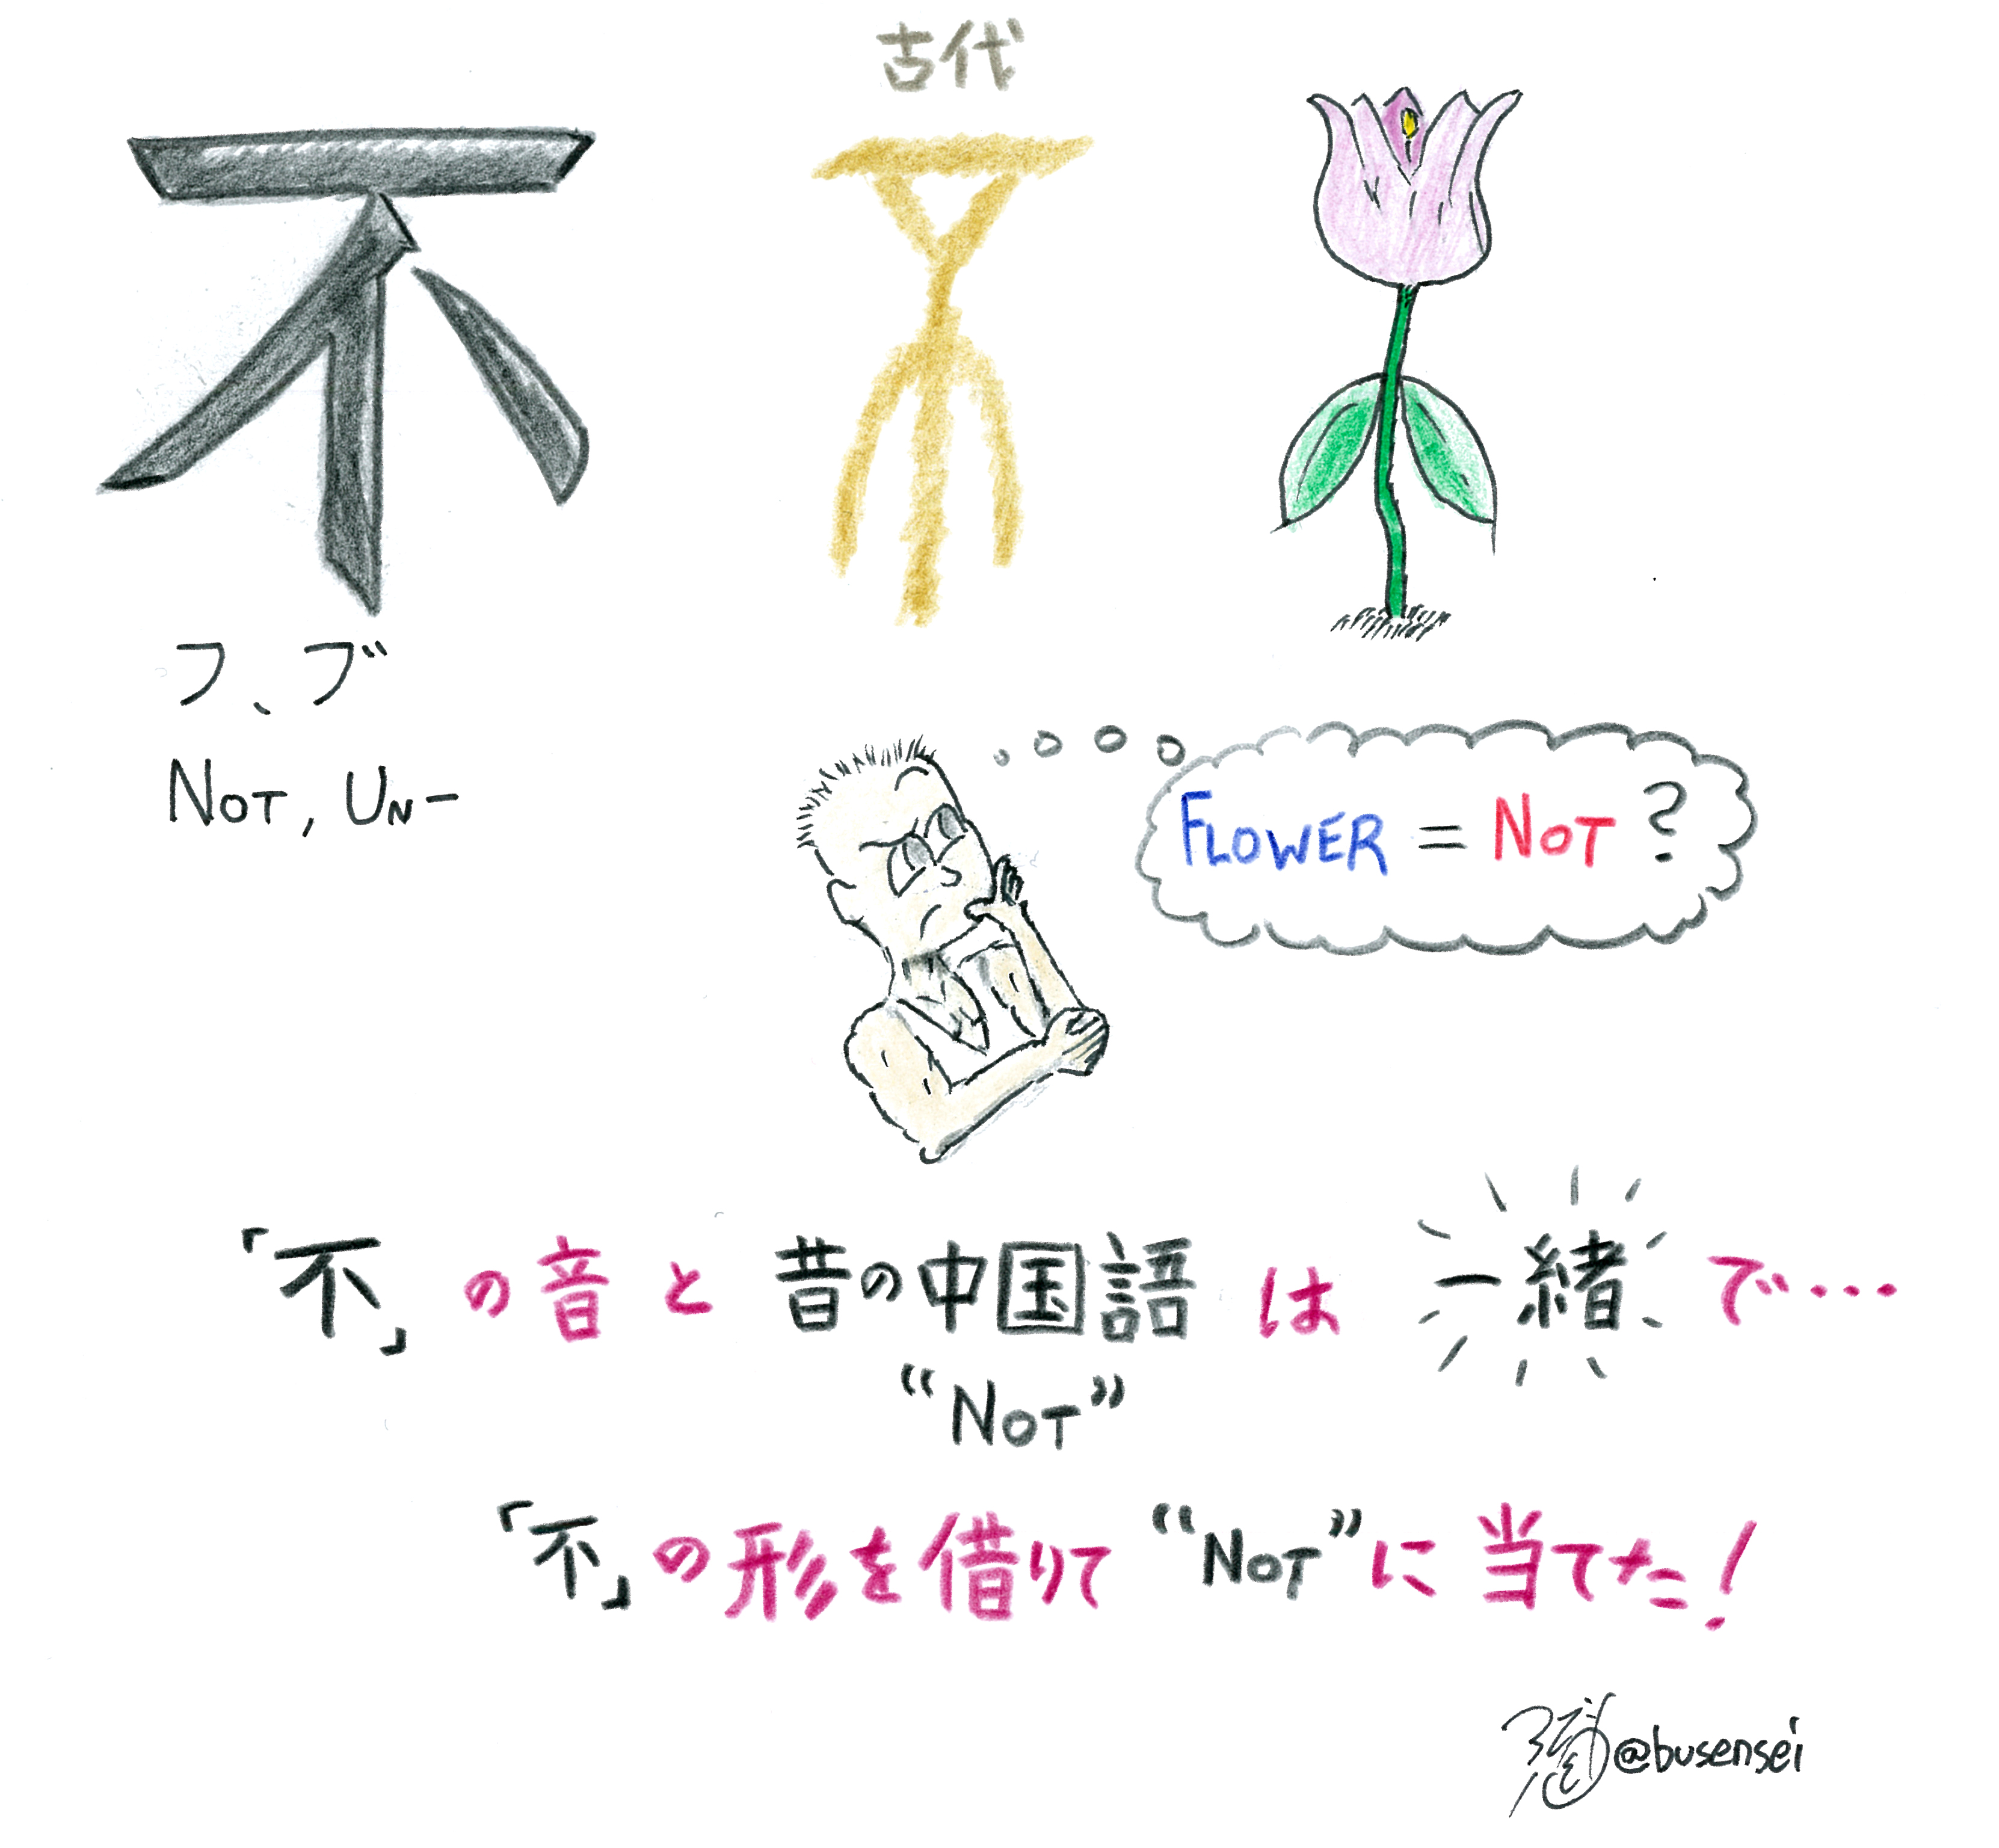 古代
不
フ、ブ
NOT, UN-
FLOWER = NOT?
「不」の音と昔の中国語は一緒で…
“NOT”
「不」の形を借りて“NOT”に当てた!
@busensei